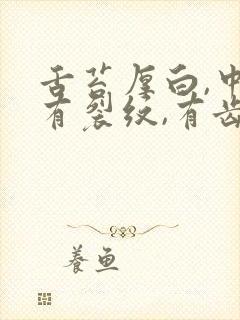 舌苔厚白,中
有裂纹,有齿
養鱼